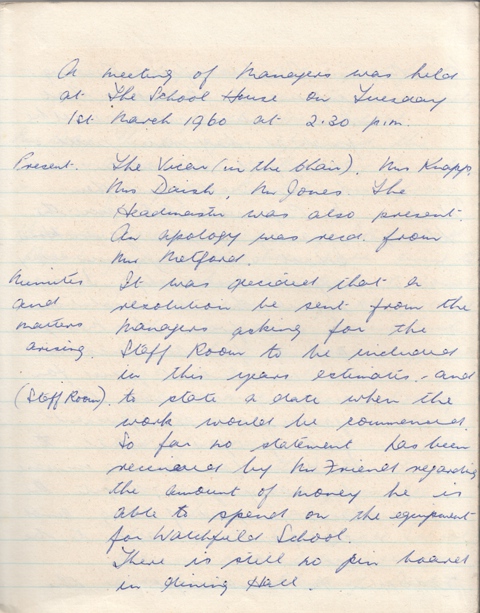 A meeting of Managers was held
at The School House on Tuesday
1st March 1960 at 2.30 p.m.
Present. The Vicar (in the Chair), Mrs Knapp,
Mrs Daish, Mr Jones. The
Headmaster was also present.
An apology was recd. from
Mr Metford.
Minutes It was decided that a
and resolution be sent from the
matters Managers asking for the
arising. Staff Room to be included
in this years estimates and
(Staff Room). to state a date when the
work would be commenced.
So far no statement has been
received by Mr Friend regarding
the amount of money he is
able to spend on the equipment
for Watchfield School.
There is still no pin board
in dining Hall.